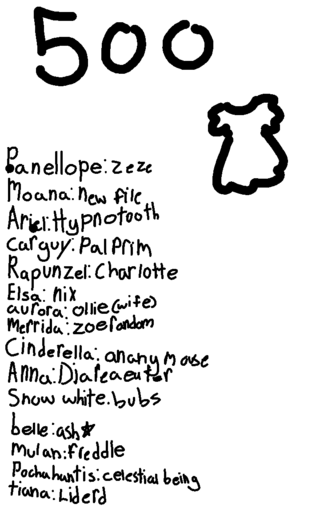 500
Panellope: zeze
Moana: New file
Ariel: Hypnotooth
Car guy: Pal Prim
Rapunzel: Charlotte
Elsa: nix
aurora: ollie (wife)
Merrida: zoe fandom
Cinderella: anany mouse
Anna: Djafeaeuter
Snow white. bubs
belle: ash★
mulan: freddle
Pochahuntis: celestial being
tiana: Liderd